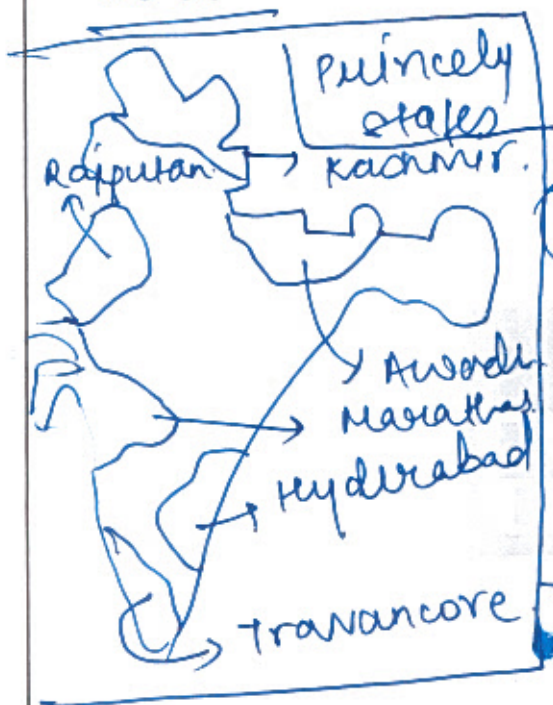 Princely
states
Rajputan
Kashmir.
Awadh
Marathas
Hyderabad
Travancore